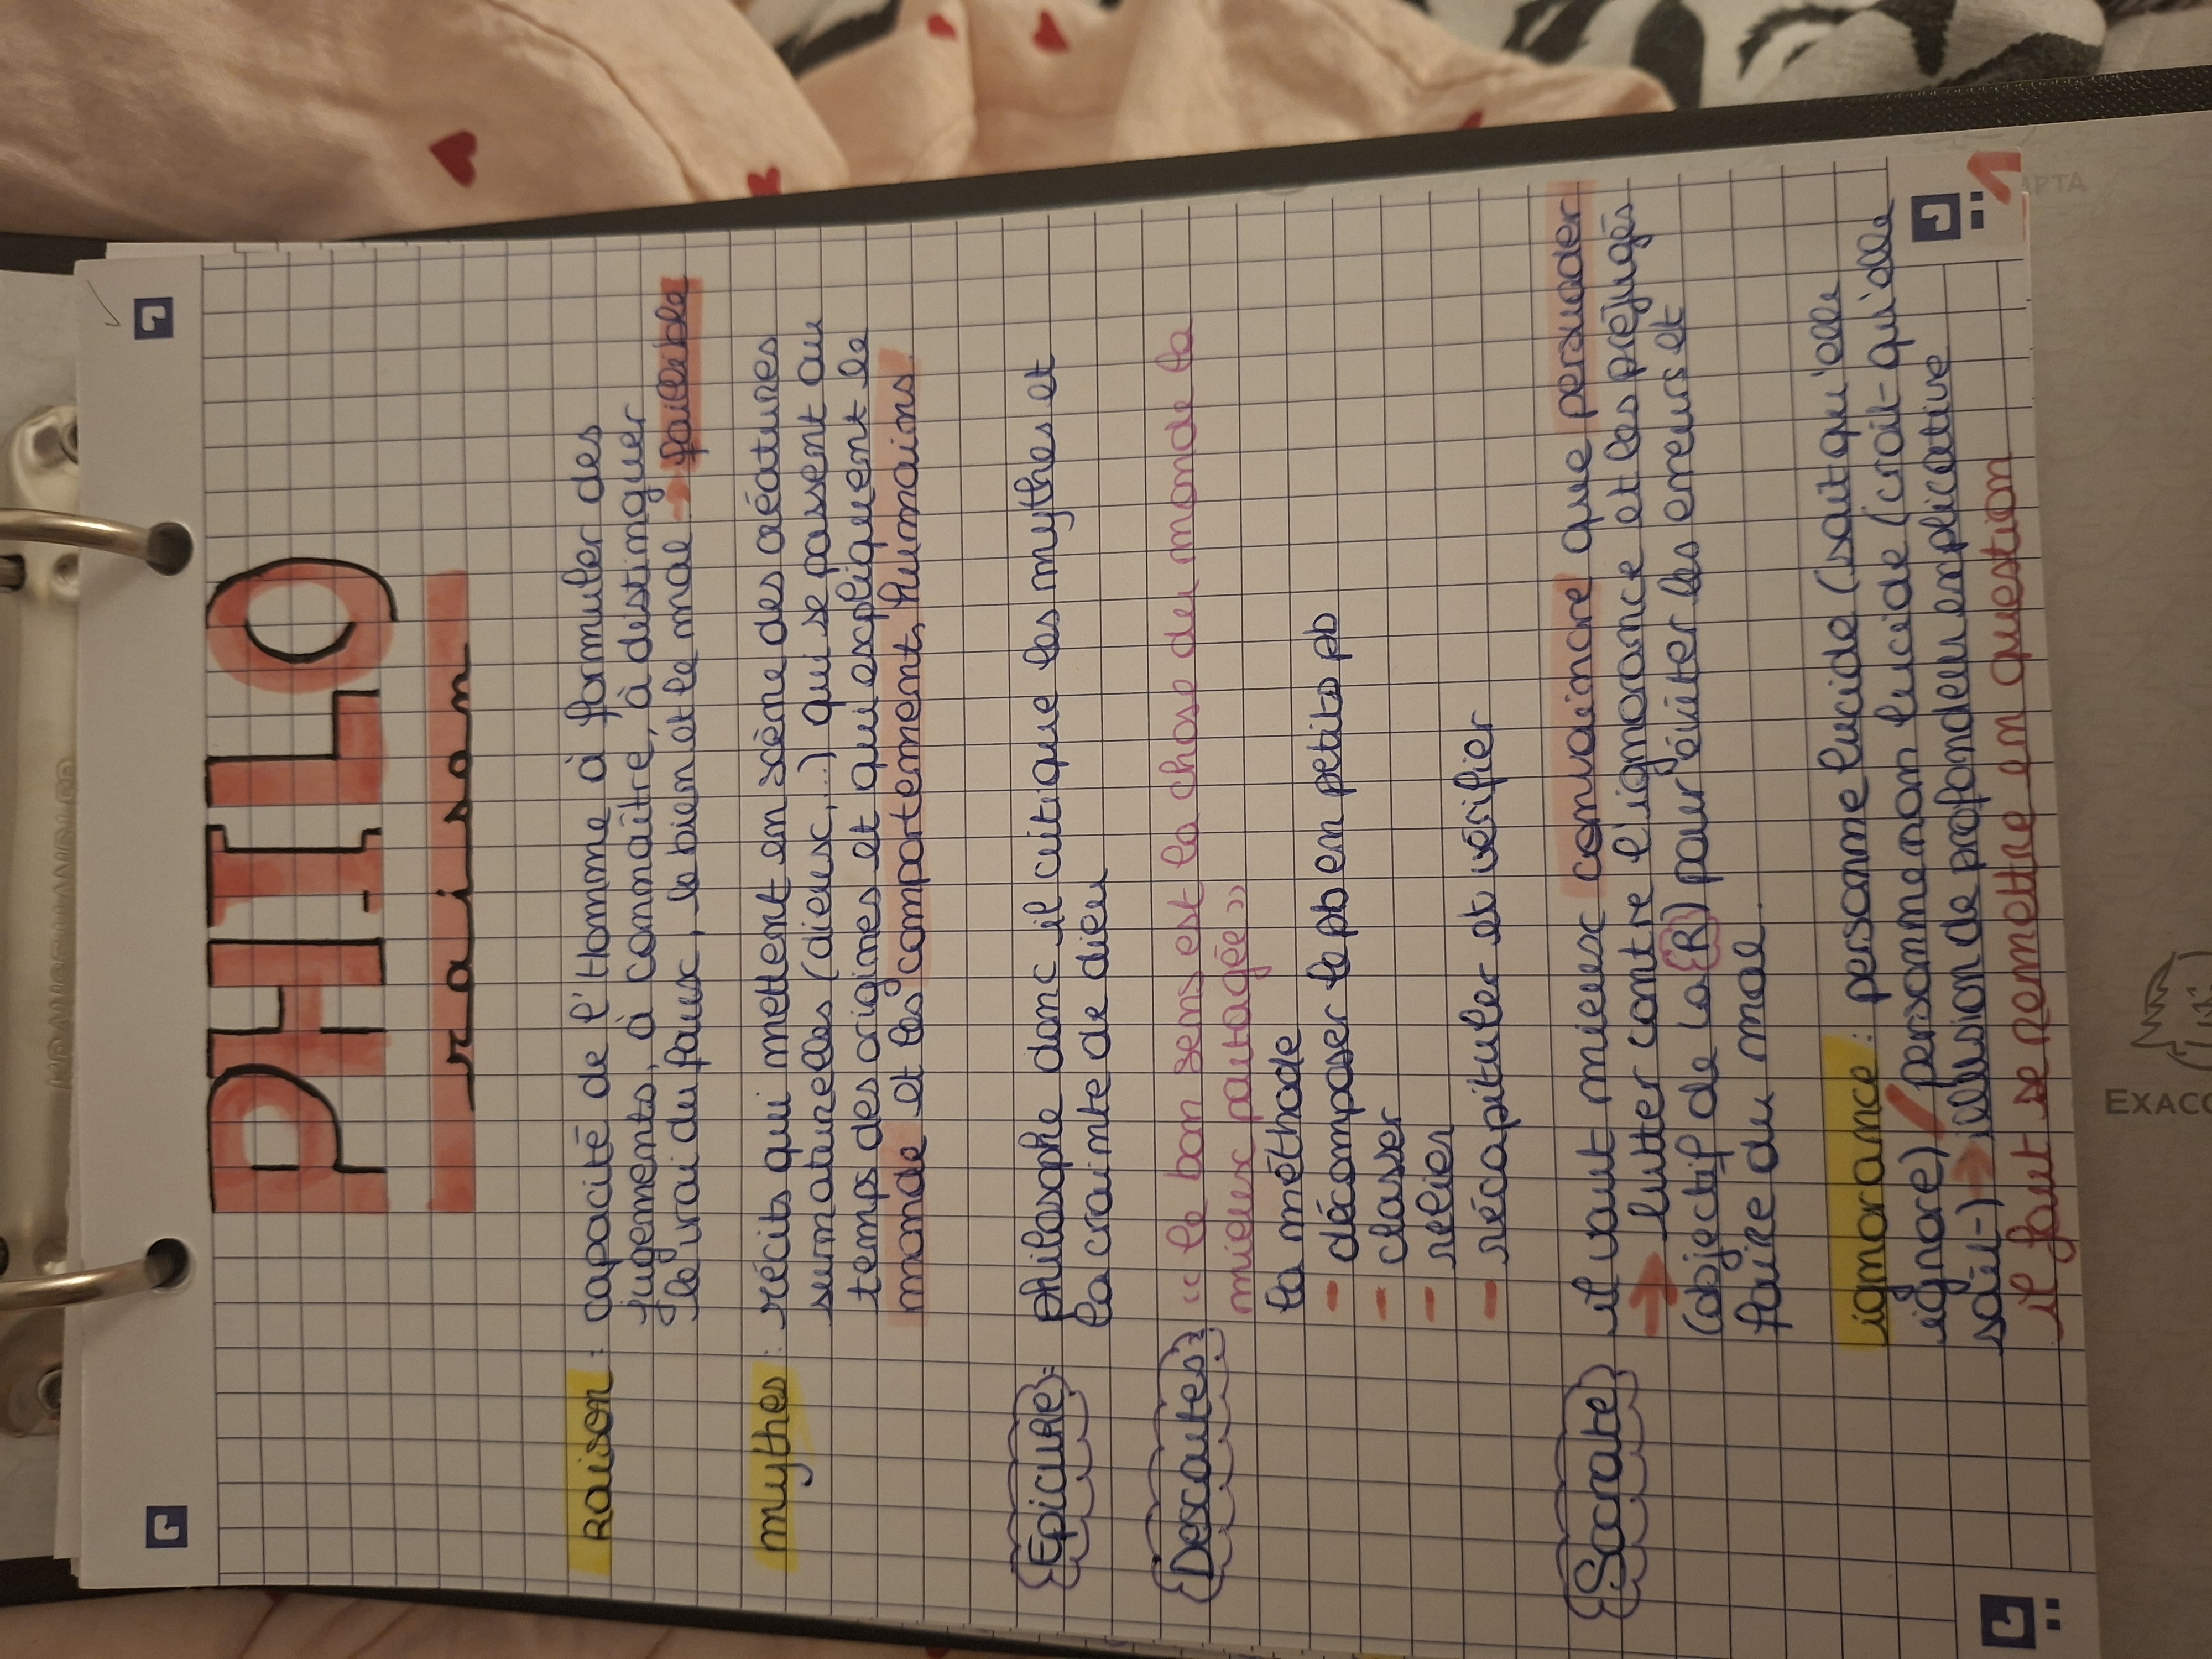 PHILO
raison
Raison : capacité de l'Homme à formuler des
jugements, à connaître, à destinguer
le vrai du faux, le bien et le mal → faillible
mythes : récits qui mettent en scène des créatures
surnaturelles (dieux,...) qui se passent au
temps des origines et qui expliquent le
monde et les comportement humains.
Epicure : philosophe donc il critique les mythes et
la crainte de dieu
Descartes : « le bon sens est la chose du monde la
mieux partagée »
la méthode
- décomposer le pb en petits pb
- classer
- relier
- récapituler et vérifier
Socrate il vaut mieux convaincre que persuader
→ lutter contre l'ignorance et les préjugés
(objectif de la (R) pour éviter les erreurs et
faire du mal.
ignorance : personne lucide (sait qu'elle
ignore) / personne non lucide (croit qu'elle
sait) → illusion de profondeur explicative
il faut se remettre en question
1
EXACO